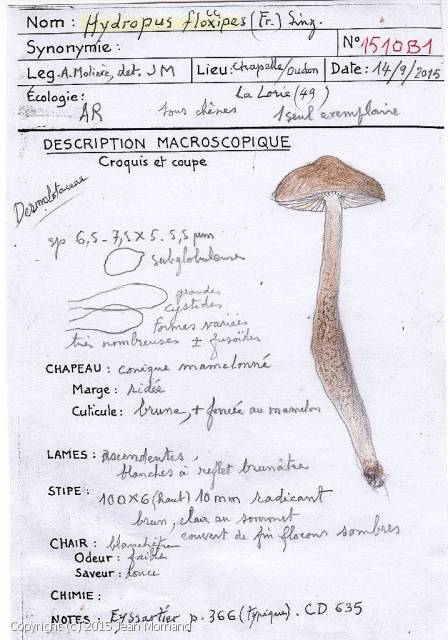 Nom : Hydropus floccipes (Fr.) Sing.
Synonymie :
N° 1510B1
Leg. A. Molière, det. J M
Lieu : Chapelle/Oudon
Date : 14/9/2015
Écologie :
La Lorie (49)
AR sous chênes 1 seul exemplaire
DESCRIPTION MACROSCOPIQUE
Croquis et coupe
sp 6,5 - 7,5 x 5 . 5,5 µm
subglobuleuses
grandes
cystides
formes variées
très nombreuses ± fusoïdes
CHAPEAU : conique mamelonné
Marge : ridée
Cuticule : brune, + foncée au mamelon
LAMES : ascendentes,
blanches à reflet brunâtre
STIPE : 100x6 (haut) 10 mm radicant
brun, clair au sommet
couvert de fin flocons sombres
CHAIR : blanchâtre
Odeur : faible
Saveur : douce
CHIMIE :
NOTES : Eyssartier p. 366 (typique) . CD 635
Copyright (c) 2015 Jean Mornand